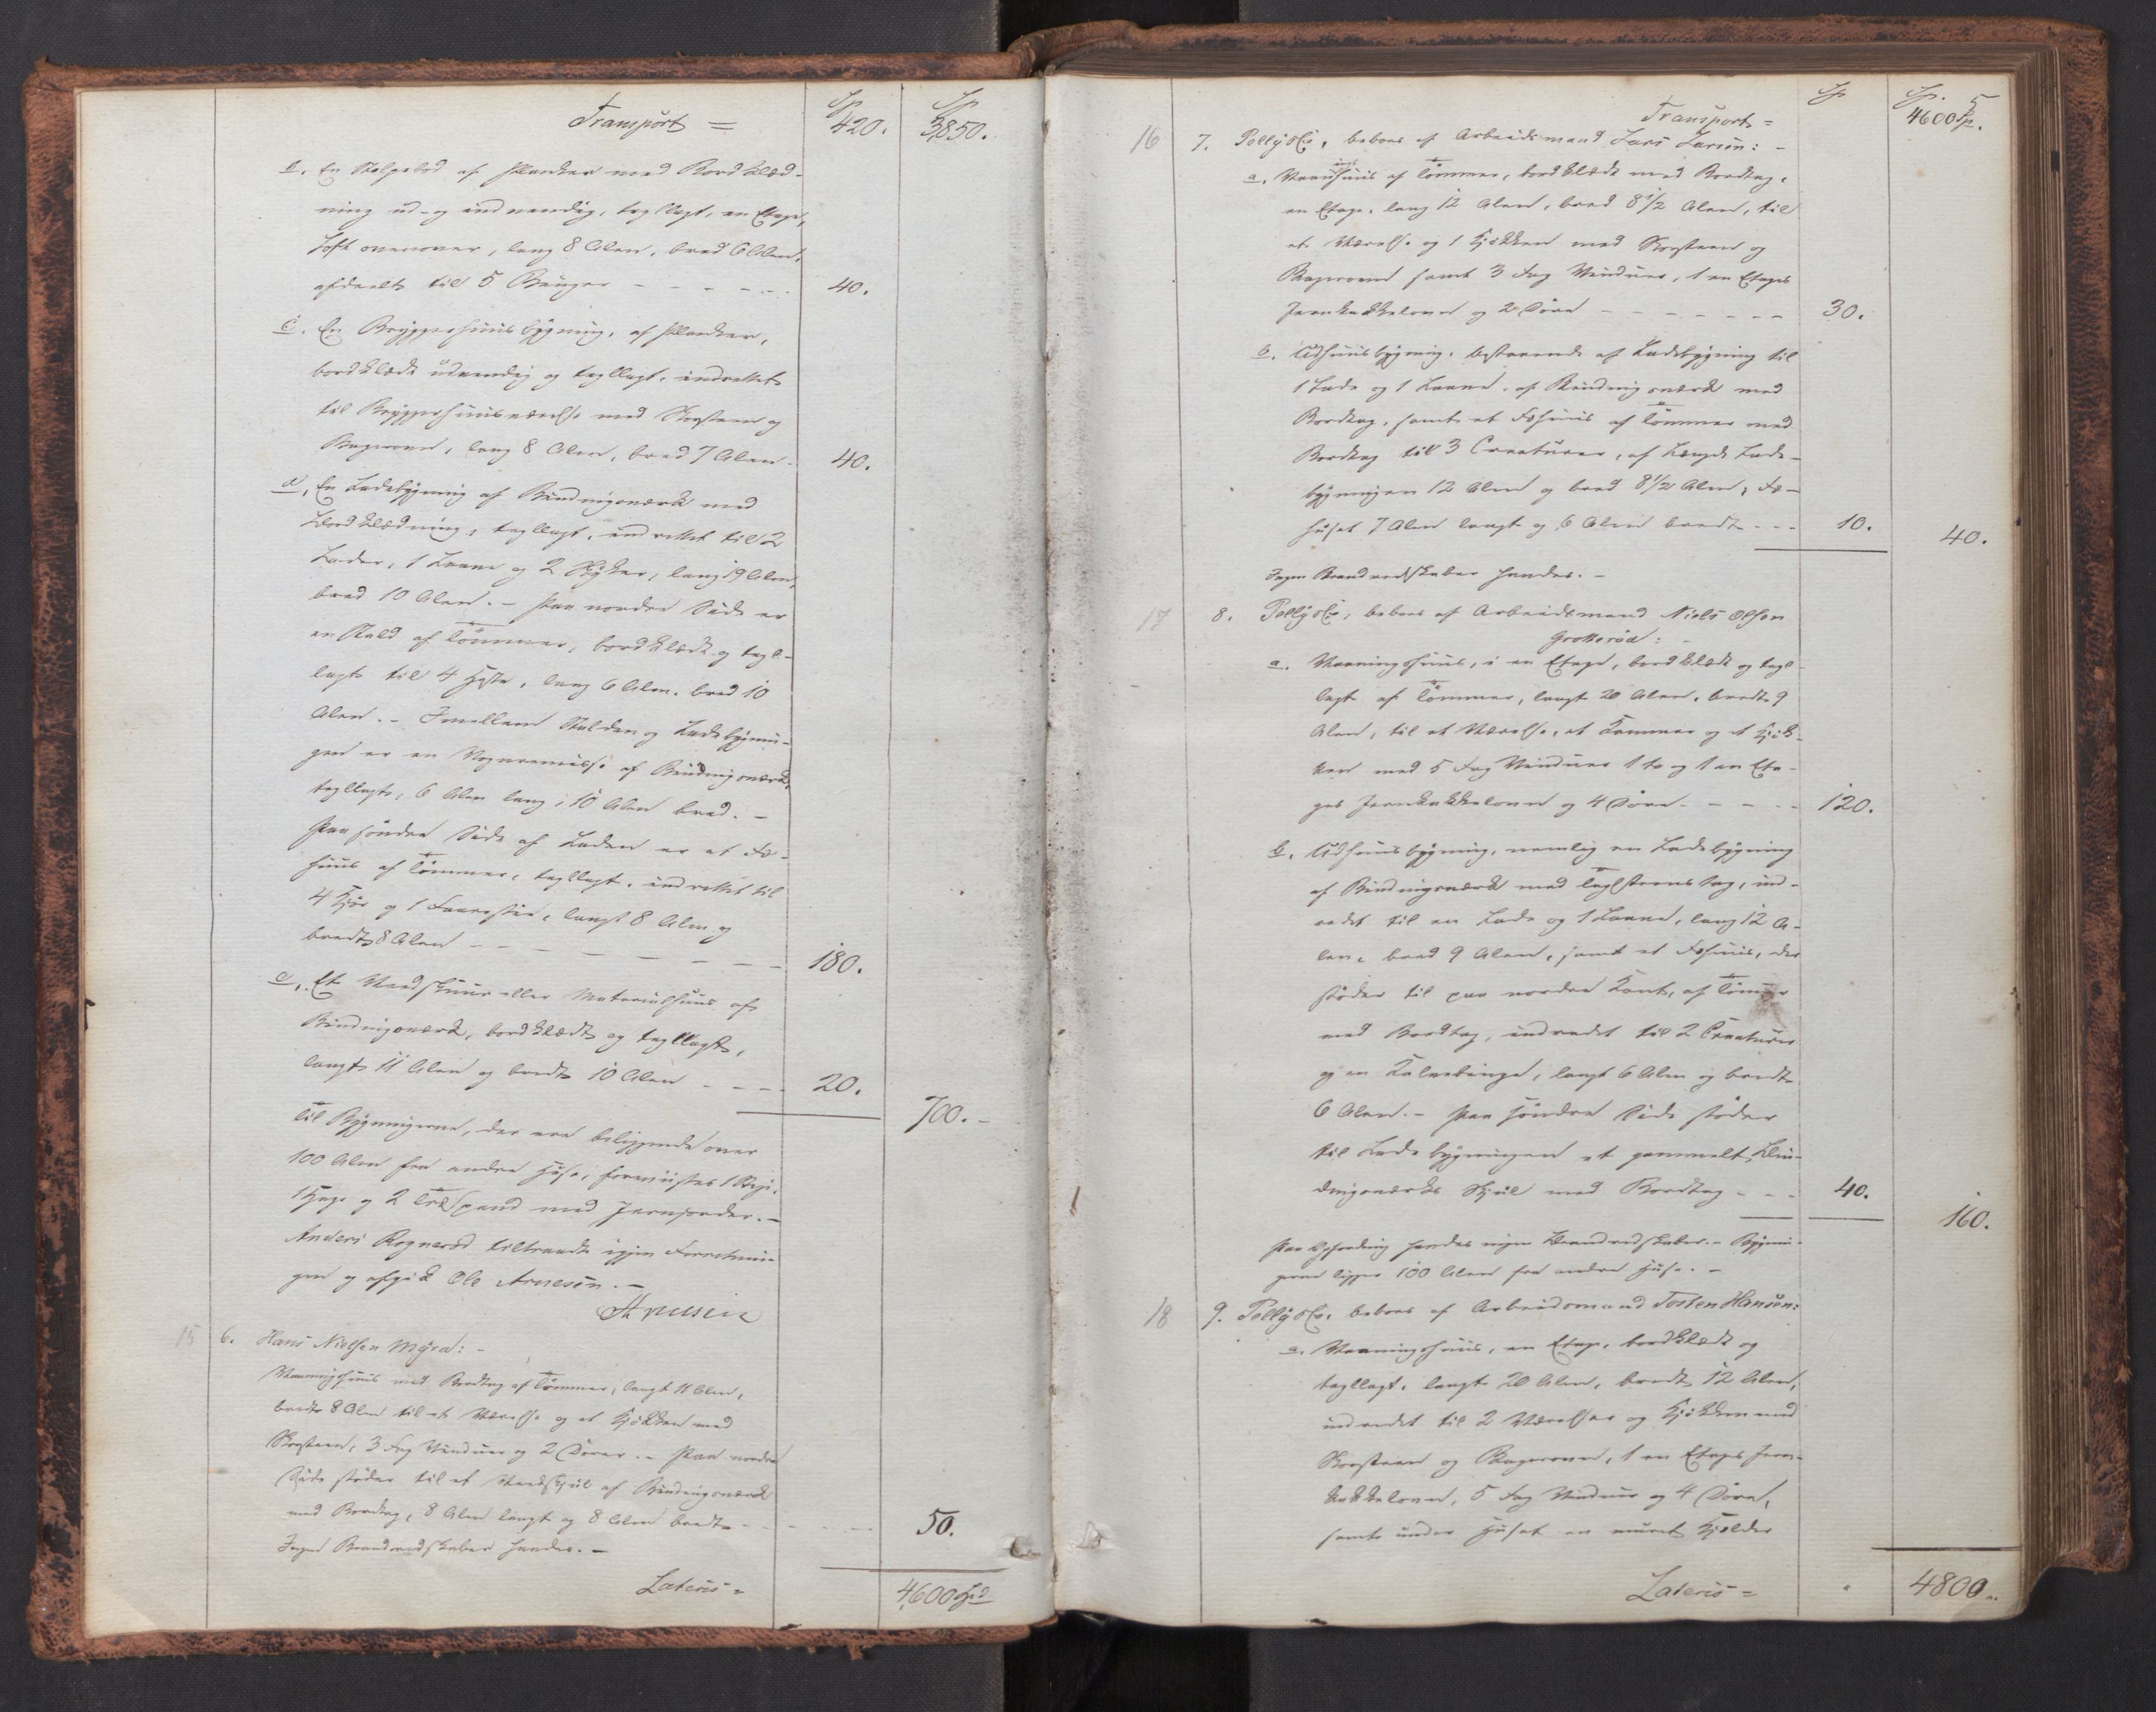 Transport =
Sp
420.
Sp
3,850.
b. En Stolpebod af Planker med Bordklæd-
ning ud- og indvendig, tegllagt, en Etage,
Loft ovenover, lang 8 Alen, bred 6 Alen,
afdeelt til 5 Binger - - - - - - 40.
c. En Bryggerhuusbygning, af Planker,
bordklædt udvendig og tegllagt, indrettet
til Bryggerhuusværelse med Skorsteen og
Bagerovn, lang 8 Alen, bred 7 Alen - 40.
d. En Ladebygning af Bindingsværk med
Bordklædning, tegllagt, indrettet til 2
Lader, 1 Laave og 2 Skyker, lang 19 Alen,
bred 10 Alen. - Paa nordre Side er
en Stald af Tömmer, bordklædt og tegl-
lagt til 4 Heste, lang 6 Alen, bred 10
Alen. - Imellem Stalden og Ladebygnin-
gen er en Vognremisse af Bindingsværk,
tegllagt, 6 Alen lang, 10 Alen bred. -
Paa söndre Side af Laden er et Fæ-
huus af Tömmer, tegllagt, indrettet til
4 Kjör og 1 Faaresti, langt 8 Alen og
bredt 8 Alen - - - - - - - - 180.
e. Et Vedskuur eller Materialhuus af
Bindingsværk, bordklædt og tegllagt,
langt 11 Alen og bredt 10 Alen - - - - 20.
700. -
Til Bygningerne, der ere beliggende over
100 Alen fra andre Huse, forevistes 1 Stige,
1 Hage og 2 Træspand med Jerngjorder. -
Anders Rognerød tiltraadte igjen Forretnin-
gen og afgik Ole Arnesen. -
Arnesen
15 6. Hans Nielsen Myra: -
Vaaningshuus med Bordtag af Tömmer, langt 11 Alen,
bredt 8 Alen til et Værelse og et Kjökken med
Skorsteen, 3 Fag Vinduer og 2 Dörer. - Paa nordre
Side stöder til et Vedskjul af Bindingsværk
med Bordtag, 8 Alen langt og 8 Alen bredt - - - - - 50.
Ingen Brandredskaber havdes. -
Lateris = 4,600 Spd
Transport =
Sp
Sp.
4600 Sp.
16 7. Pollys Ex., beboes af Arbeidsmand Lars Larsen: -
a. Vaaningshuus af Tömmer, bordklædt med Bordtag,
en Etage, lang 12 Alen, bred 8 1/2 Alen, til
et Værelse og 1 Kjökken med Skorsteen og
Bagerovn samt 3 Fag Vinduer, 1 en Etages
Jernkakkelovn og 2 Döre - - - - - - - 30.
b. Udhuusbygning, bestaaende af Ladebygning til
1 Lade og 1 Laave, af Bindingsværk med
Bordtag, samt et Fæhuus af Tömmer med
Bordtag til 3 Creaturer, af Længde Lade-
bygningen 12 Alen og bred 8 1/2 Alen, Fæ-
huset 7 Alen langt og 6 Alen bredt - - - 10.
40.
Ingen Brandredskaber havdes. -
17 8. Pollys Ex., beboes af Arbeidsmand Niels Olsen
Grotterød: -
a. Vaaningshuus, i en Etage, bordklædt og tegl-
lagt af Tömmer, langt 20 Alen, bredt 9
Alen, til et Værelse, et Kammer og et Kjök-
ken med 5 Fag Vinduer 1 to og 1 en Eta-
ges Jernkakkelovn og 4 Döre - - - - - 120.
b. Udhuusbygning, nemlig en Ladebygning
af Bindingsværk med Teglsteenstag, ind-
redet til en Lade og 1 Laave, lang 12 A-
len, bred 9 Alen, samt et Fæhuus, der
stöder til paa nordre Kant, af Tömmer
med Bordtag, indredet til 2 Creaturer
og en Kalvebinge, langt 6 Alen og bredt
6 Alen. - Paa söndre Side stöder
til Ladebygningen et gammelt Bin-
dingsværks Skjul med Bordtag - - - 40.
160.
Paa Opfordring havdes ingen Brandredskaber. - Bygnin-
gerne ligger 100 Alen fra andre Huse. -
18 9. Pollys Ex., beboes af Arbeidsmand Tosten Hansen:
a. Vaaningshuus, en Etage, bordklædt og
tegllagt, langt 20 Alen, bredt 12 Alen,
indredet til 2 Værelser og Kjökken med
Skorsteen og Bagerovn, 1 en Etages Jern-
kakkelovn, 5 Fag Vinduer og 4 Döre,
samt under Huset en muret Kjelder
Lateris = 4800..